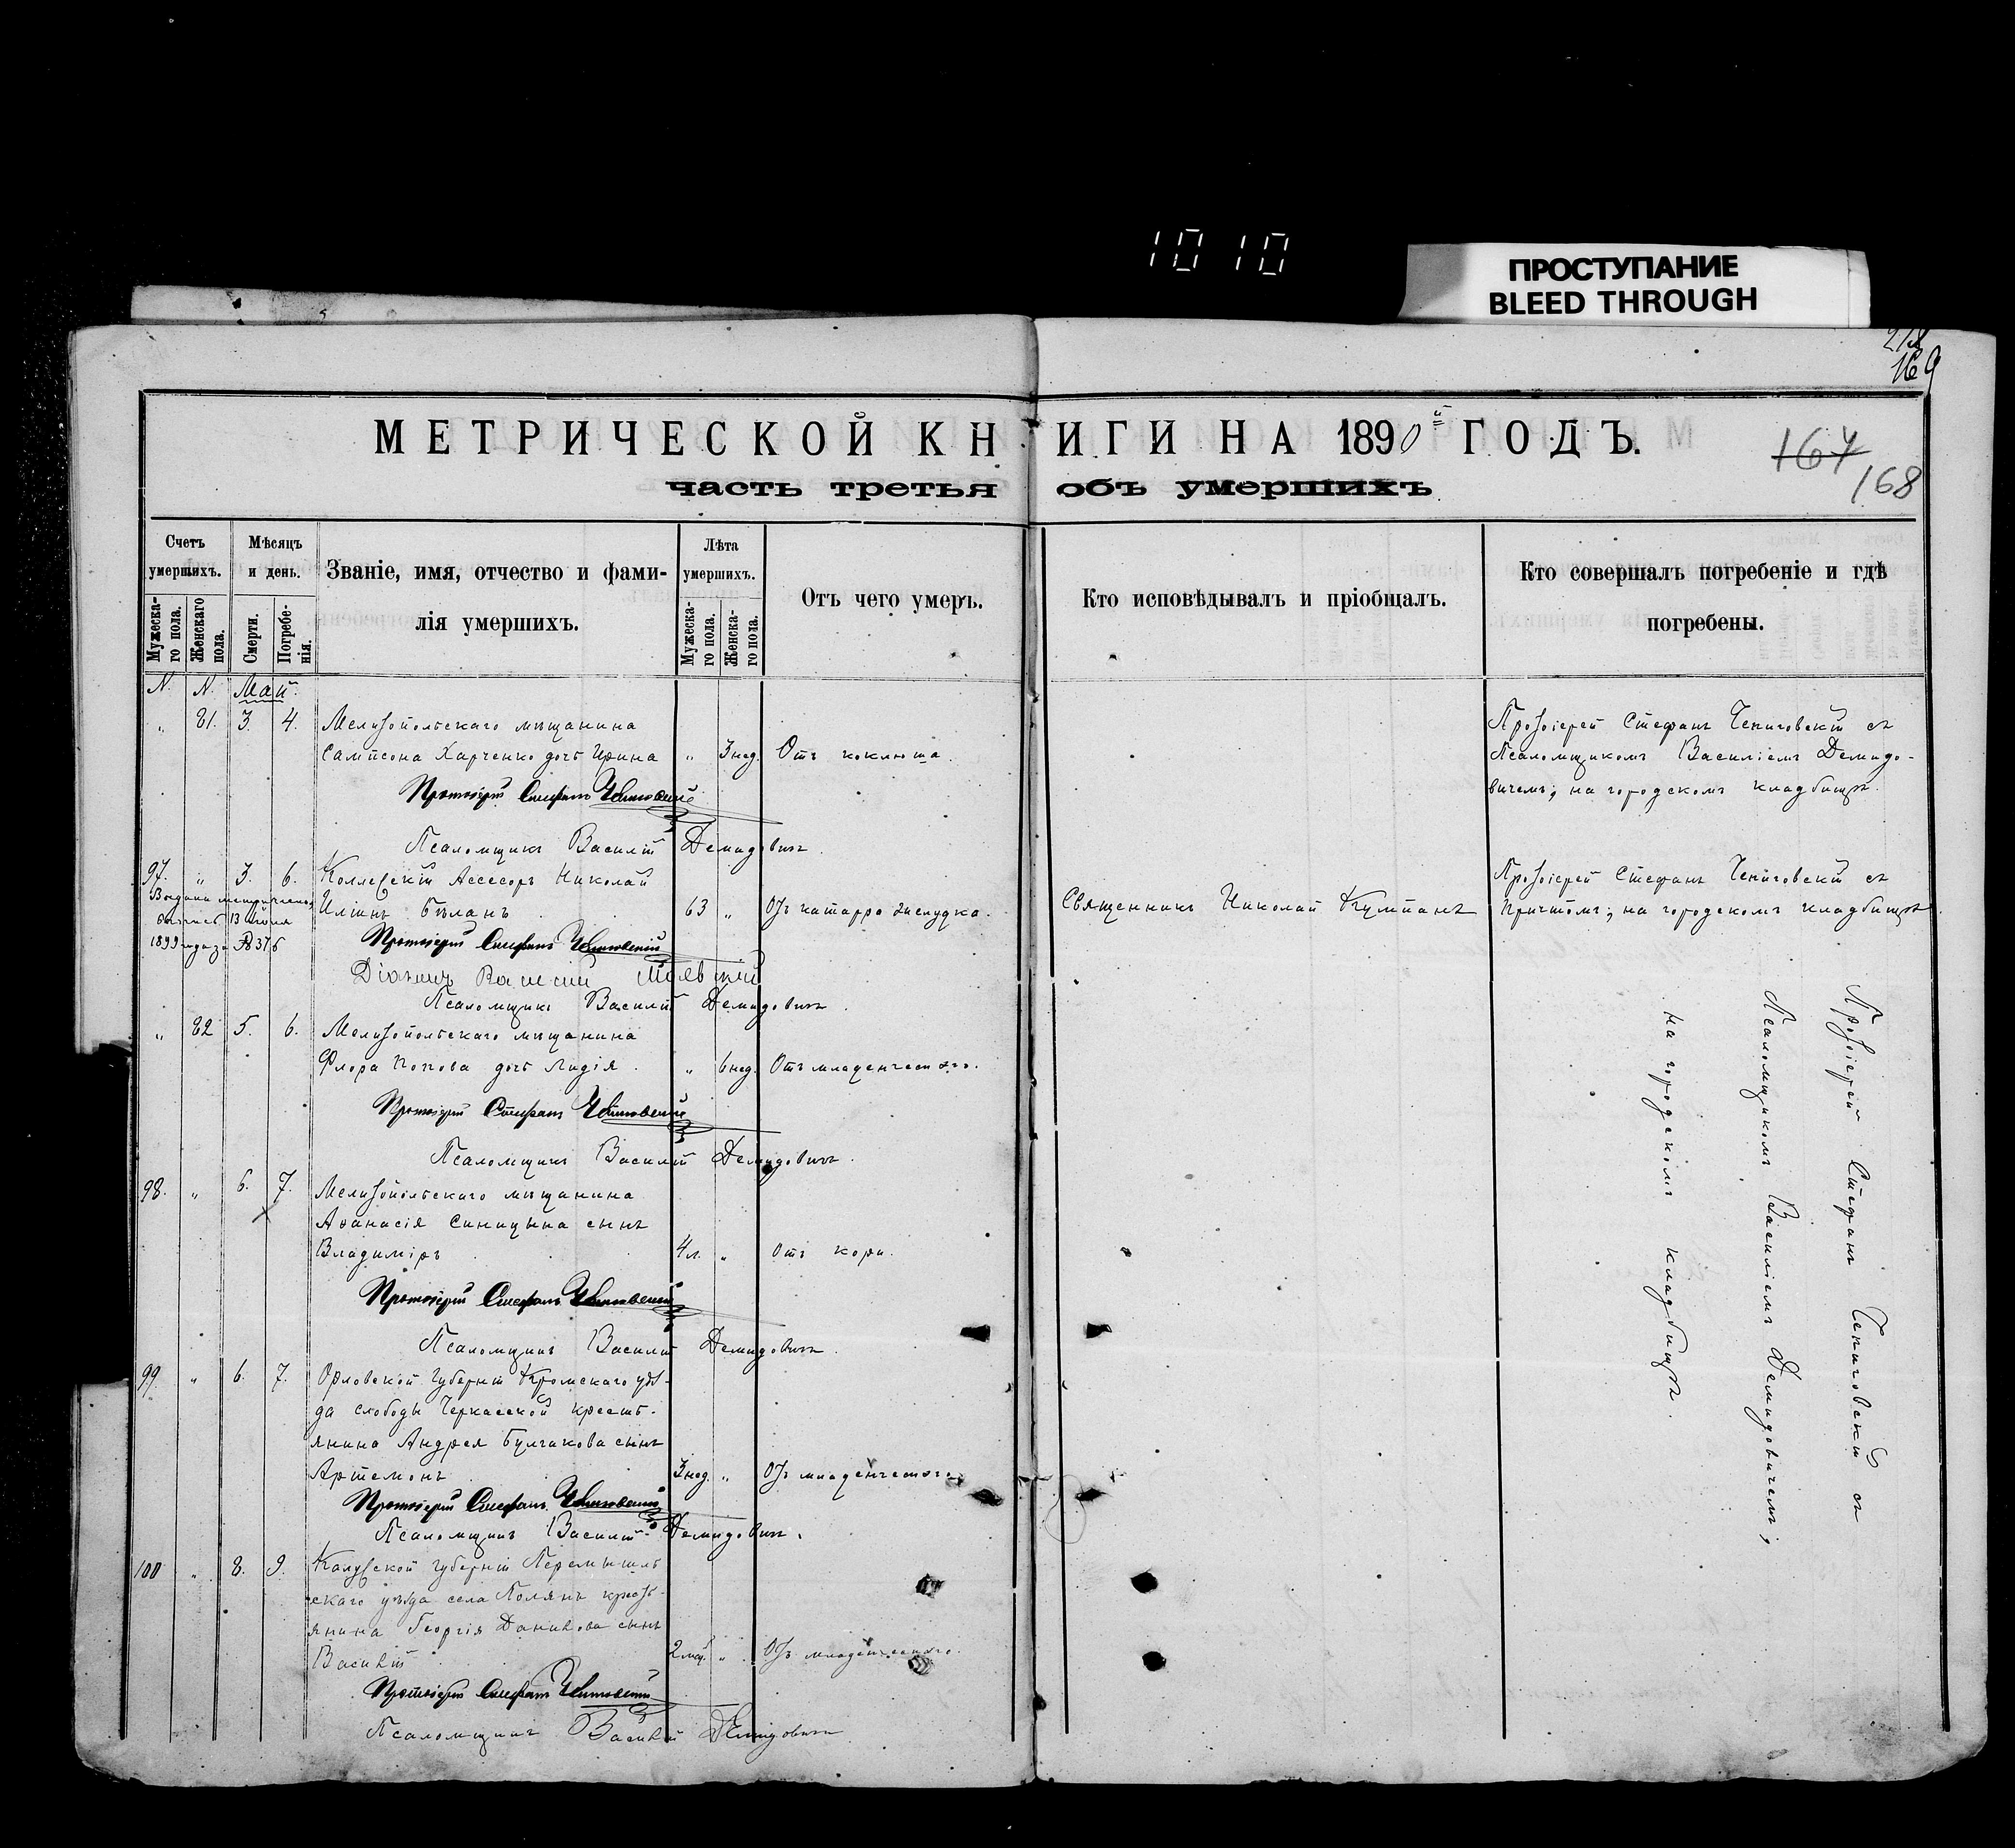 10 10
ПРОСТУПАНИЕ
BLEED THROUGH
169
МЕТРИЧЕСКОЙ КНИГИ НА 1890й ГОДЪ.
167
168
часть третья объ умершихъ
Счетъ умершихъ.
Мужеска-го пола.
Женскаго пола.
Мѣсяцъ и день.
Смерти.
Погребе-нія.
Званіе, имя, отчество и фами-
лія умершихъ.
Лѣта умершихъ.
Мужеска-го пола.
Женска-го пола.
Отъ чего умеръ.
Кто исповѣдывалъ и пріобщалъ.
Кто совершалъ погребеніе и гдѣ
погребены.
N. N. Май.
„ 81. 3. 4. Мелитопольскаго мѣщанина
Сампсона Харченко дочь Ирина „ 3 нед. Отъ коклюша.
Протоіерей Стефанъ
Псаломщикъ Василій Демидовичъ.
Протоіерей Стефанъ съ
Псаломщикомъ Василіемъ Демидо-
вичемъ, на городскомъ кладбищѣ.
97. „ 3. 6. Коллежскій Ассесоръ Николай
Иліинъ Бѣланъ 63 „ Отъ катарра желудка.
Выдана метрическая
выпись 13 Июля
1899 года за № 376
Протоіерей Стефанъ
Діаконъ Василій
Псаломщикъ Василій Демидовичъ.
Священникъ Николай Кумпанъ
Протоіерей Стефанъ съ
причтомъ, на городскомъ кладбищѣ.
„ 82 5. 6. Мелитопольскаго мѣщанина
Флора Попова дочь Лидія. „ 6 нед. Отъ младенческаго.
Протоіерей Стефанъ
Псаломщикъ Василій Демидовичъ.
98. „ 6. 7. Мелитопольскаго мѣщанина
Аѳанасія Синицына сынъ
Владиміръ 4 л. „ Отъ кори.
Протоіерей Стефанъ
Псаломщикъ Василій Демидовичъ.
99. „ 6. 7. Орловской губерніи Кромскаго уѣз-
да слободы Черкасской кресть-
янина Андрея Булгакова сынъ
Артемонъ 3 нед. „ Отъ младенческаго.
Протоіерей Стефанъ
Псаломщикъ Василій Демидовичъ.
100 „ 8. 9. Калужской губерніи Перемышль-
скаго уѣзда села Полянъ кресть-
янина Георгія Данилова сынъ
Василій 2 мѣс. „ Отъ младенческаго.
Протоіерей Стефанъ
Псаломщикъ Василій Демидовичъ
Протоіерей Стефанъ съ
Псаломщикомъ Василіемъ Демидовичемъ,
на городскомъ кладбищѣ.